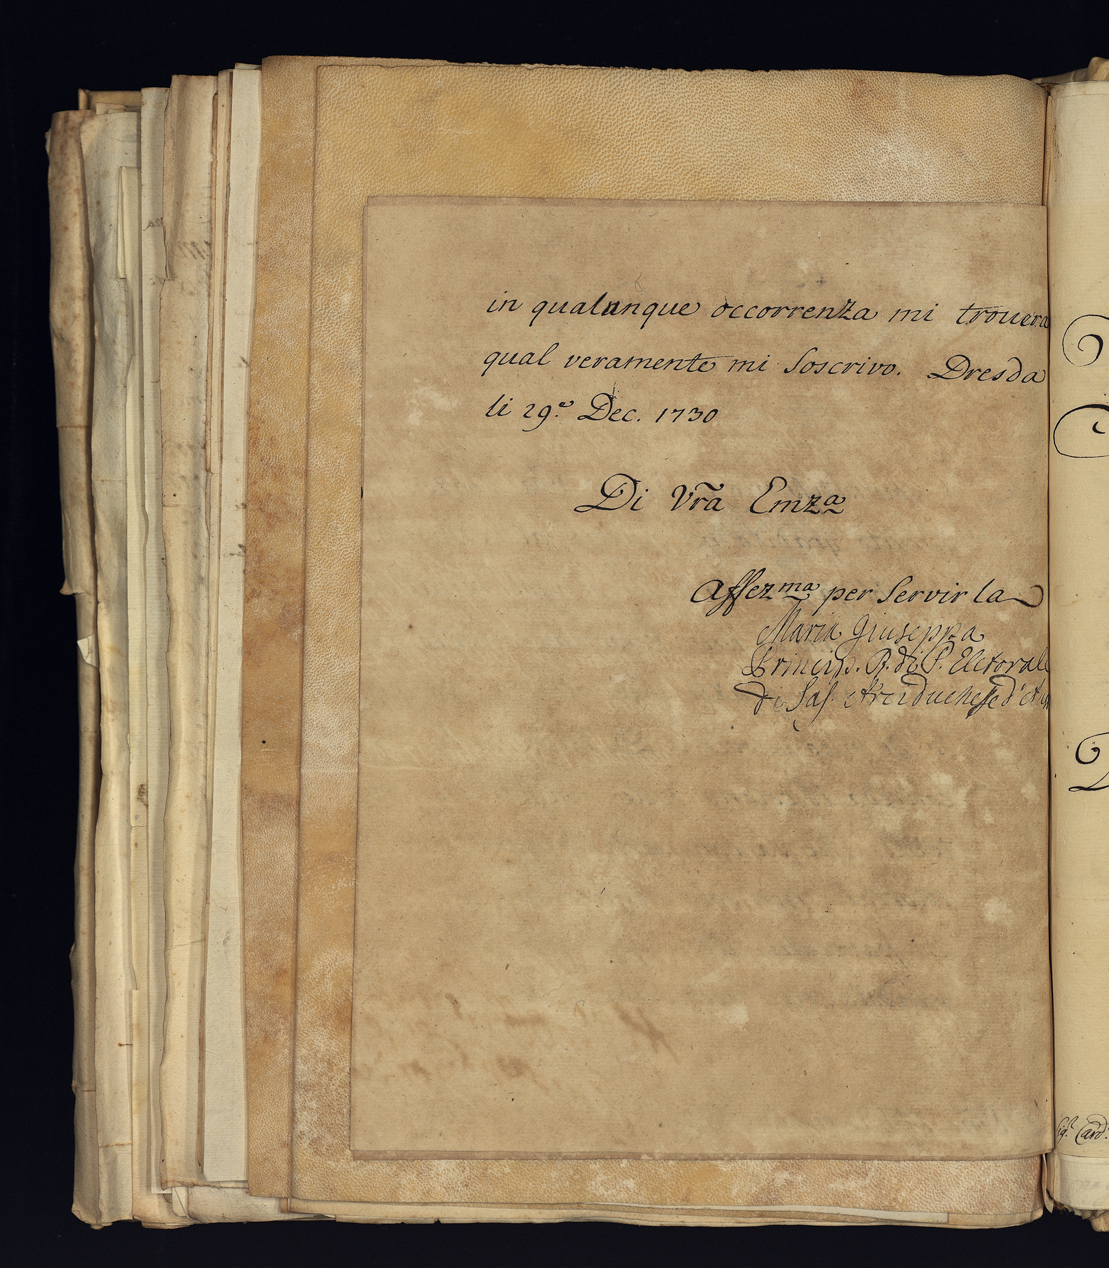 in qualunque occorrenza mi trouera
qual veramente mi soscrivo. Dresda
li 29.e Dec. 1730
Di Vrã Emza
Affezma per servir la
Maria Giuseppa
Princip. R. di P. Elettorale
di Sas. Arciduchesse d'
Card.